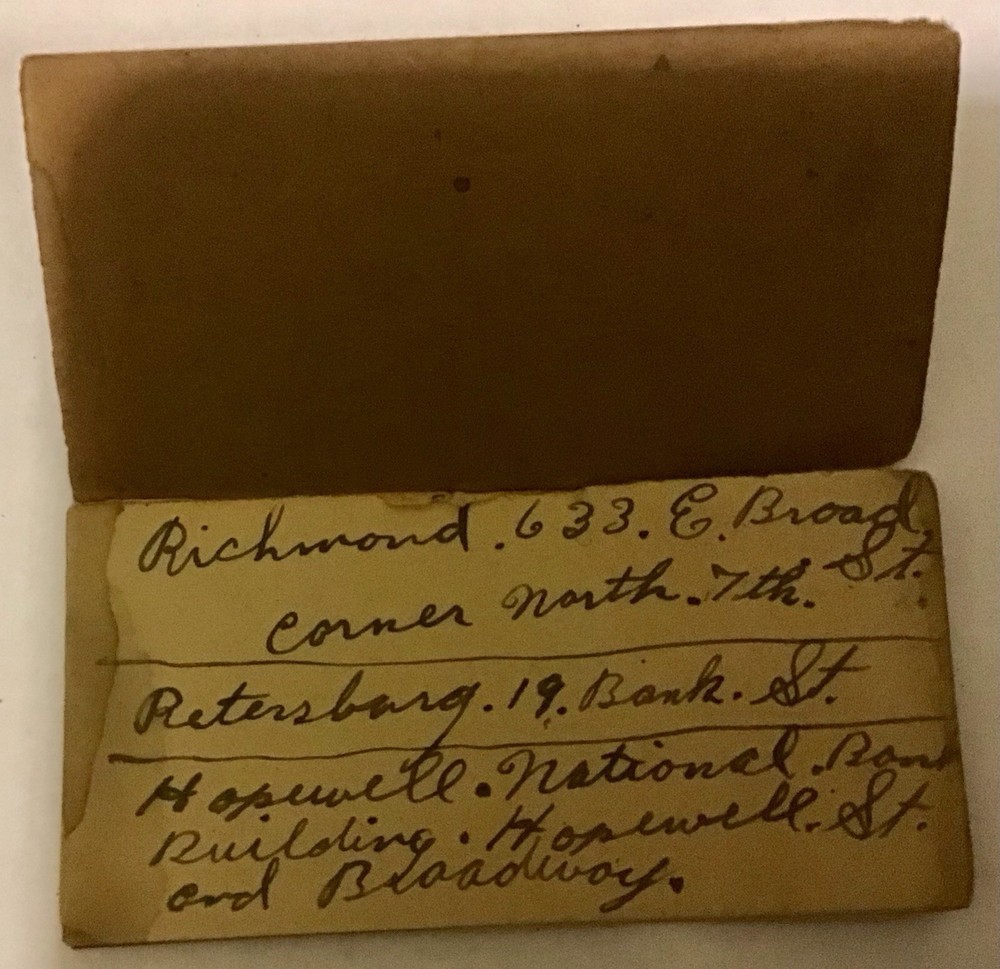 Richmond. 633. E. Broad.
St.
Corner North. 7th.
Petersburg. 19. Bank. St.
Hopewell. National. Bank
Building. Hopewell. St.
and Broadway.